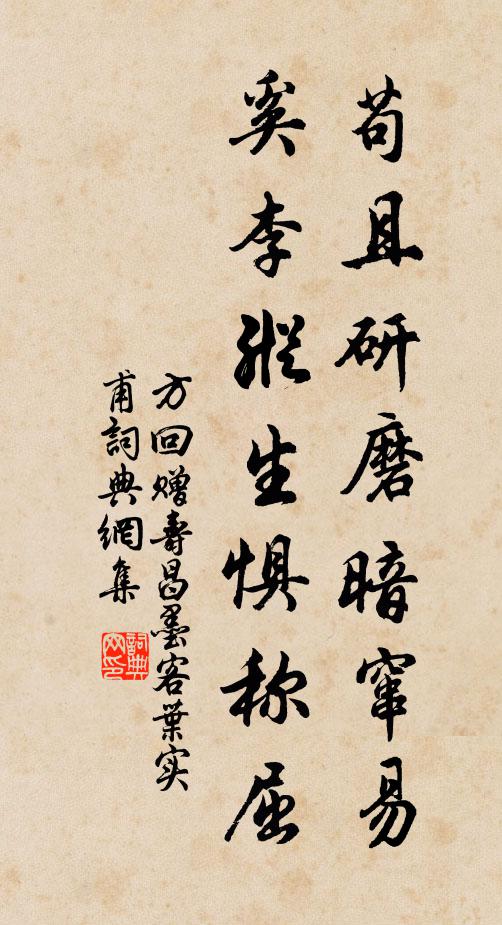 苟且研磨暗窜易
奚李縱生惧称屈
方回赠壽昌墨客葉实
甫詞典網集
詞典網印